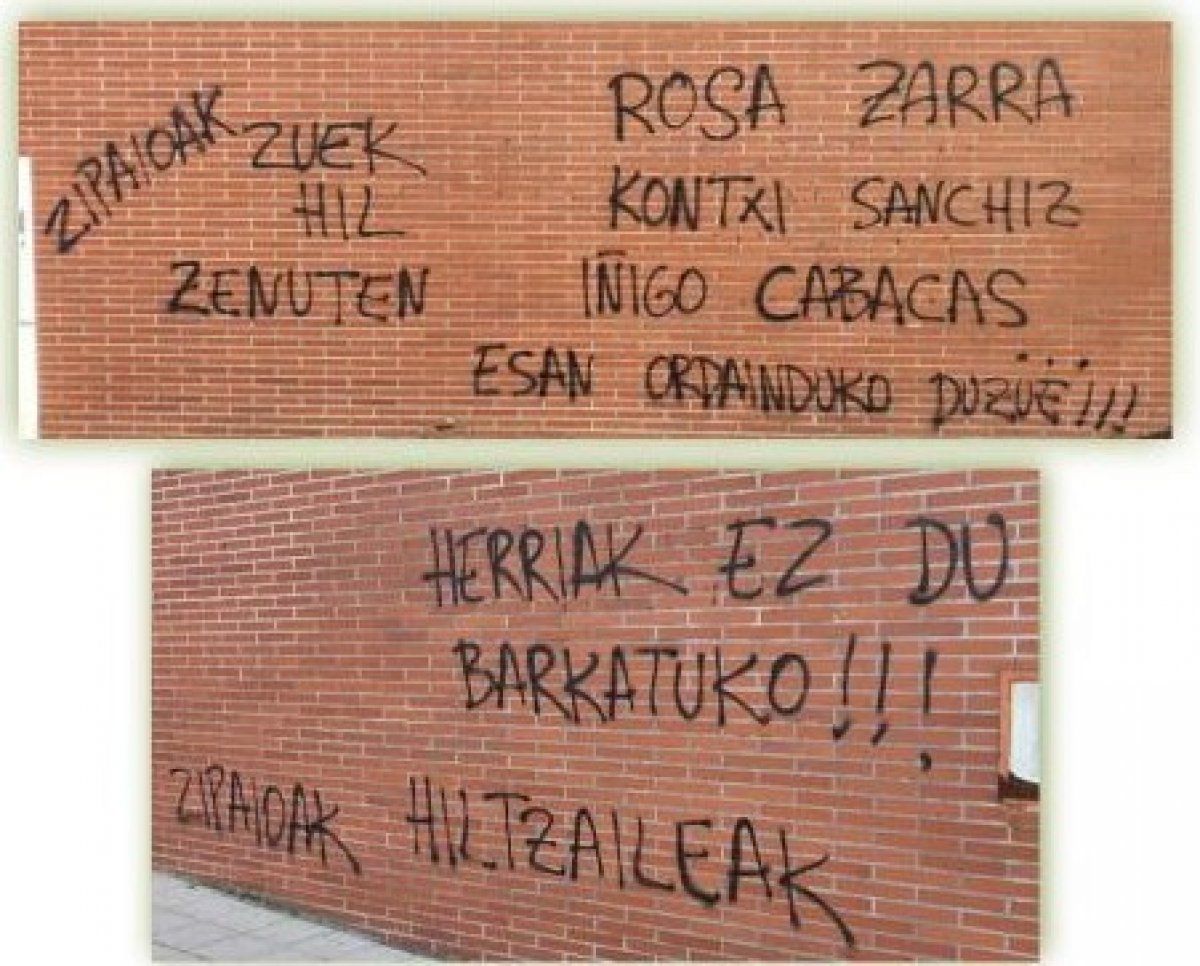 ZIPAIOAK ZUEK
HIL
ZENUTEN
ROSA ZARRA
KONTXI SANCHIZ
IÑIGO CABACAS
ESAN ORDAINDUKO DUZUE...!!!
HERRIAK EZ DU
BARKATUKO!!!
ZIPAIOAK HILTZAILEAK